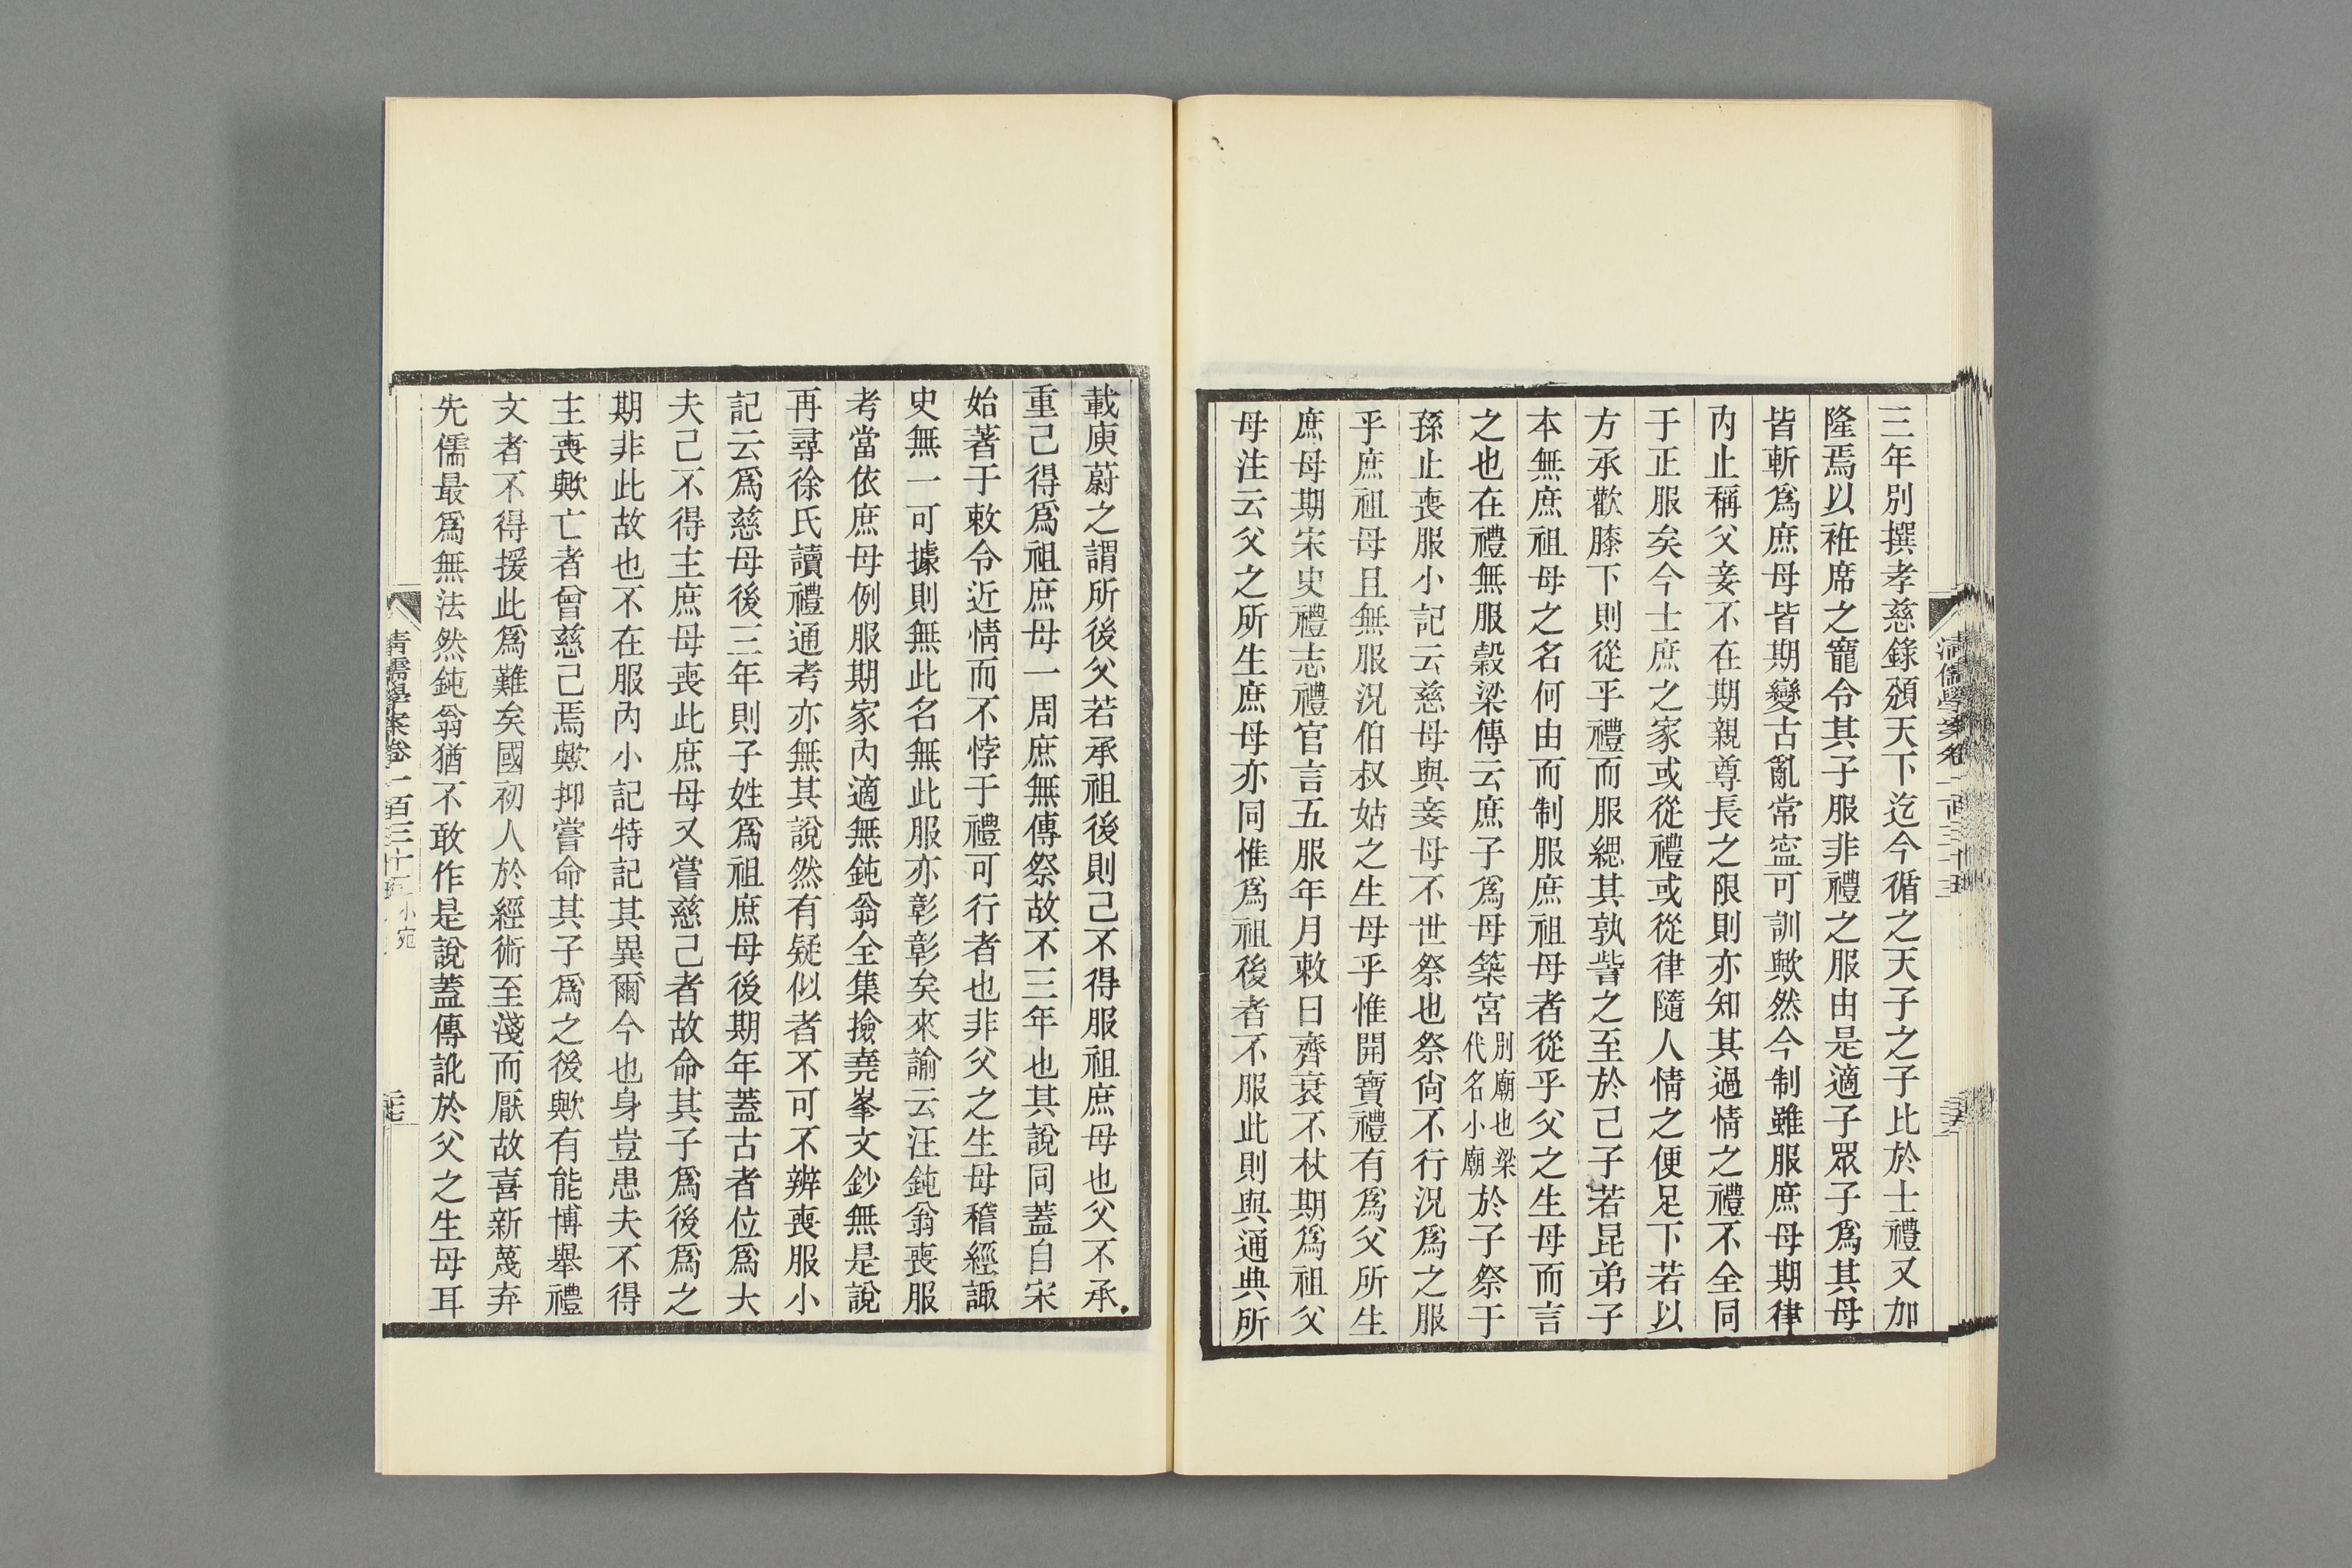 三年別撰孝慈錄頒天下迄今循之天子之子比於士禮又加
隆焉以袵席之寵令其子服非禮之服由是適子眾子爲其母
皆斬爲庶母皆期變古亂常寍可訓歟然今制雖服庶母期律
內止稱父妾不在期親尊長之限則亦知其過情之禮不全同
于正服矣今士庶之家或從禮或從律隨人情之便足下若以
方承歡膝下則從乎禮而服緦其孰訾之至於己子若昆弟子
本無庶祖母之名何由而制服庶祖母者從乎父之生母而言
之也在禮無服穀梁傳云庶子爲母築宮別廟也梁代名小廟於子祭于
孫止喪服小記云慈母與妾母不世祭也祭尙不行況爲之服
乎庶祖母且無服況伯叔姑之生母乎惟開寶禮有爲父所生
庶母期宋史禮志禮官言五服年月敕曰齊衰不杖期爲祖父
母注云父之所生庶母亦同惟爲祖後者不服此則與通典所
清儒學案卷一百三十五
載庾蔚之謂所後父若承祖後則己不得服祖庶母也父不承
重己得爲祖庶母一周庶無傳祭故不三年也其說同蓋自宋
始著于敕令近情而不悖于禮可行者也非父之生母稽經諏
史無一可據則無此名無此服亦彰彰矣來諭云汪鈍翁喪服
考當依庶母例服期家內適無鈍翁全集撿堯峯文鈔無是說
再尋徐氏讀禮通考亦無其說然有疑似者不可不辨喪服小
記云爲慈母後三年則子姓爲祖庶母後期年蓋古者位爲大
夫己不得主庶母喪此庶母又嘗慈己者故命其子爲後爲之
期非此故也不在服內小記特記其異爾今也身豈患夫不得
主喪歟亡者曾慈己焉歟抑嘗命其子爲之後歟有能博舉禮
文者不得援此爲難矣國初人於經術至淺而厭故喜新蔑弃
先儒最爲無法然鈍翁猶不敢作是說蓋傳訛於父之生母耳
清儒學案卷一百三十五 小宛